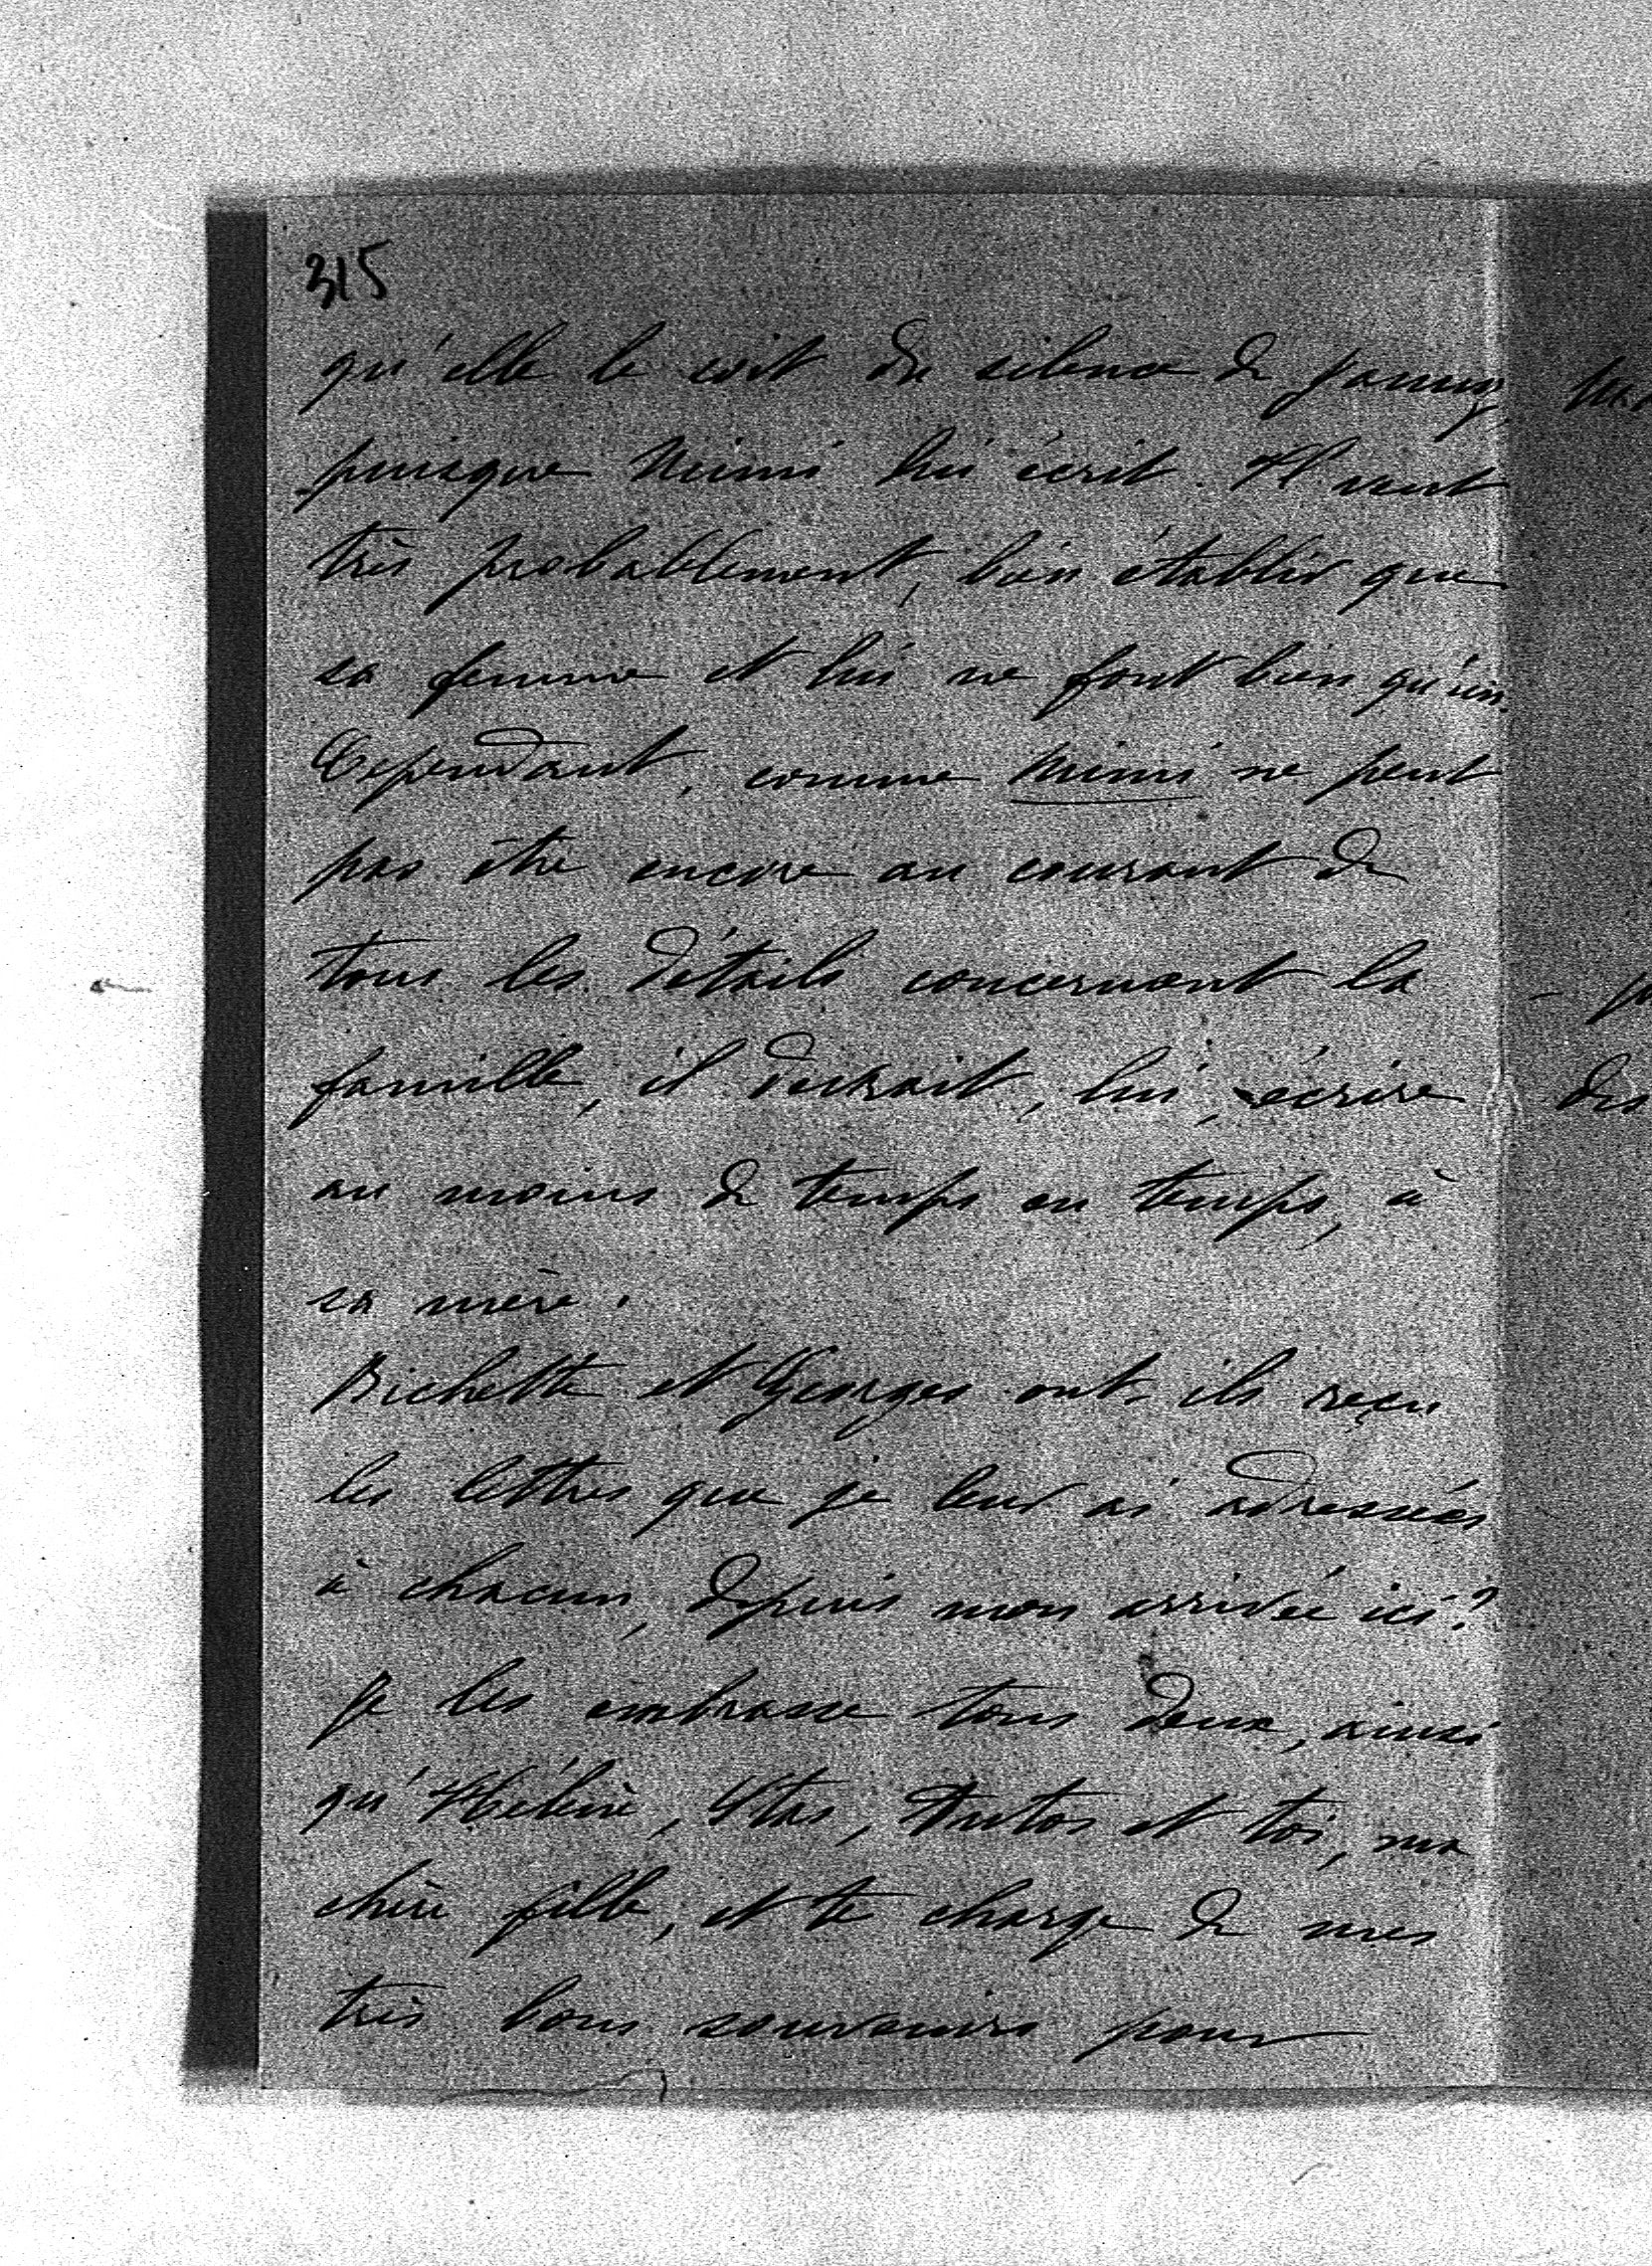 315
qu'elle le soit du silence de Jammy,
puisque Mimi lui écrit. Il veut
très probablement, bien établir que
sa femme et lui ne font bien qu'un.
Cependant, comme Mimi ne peut
pas être encore au courant de
tous les détails concernant la
famille, il devrait, lui, écrire
au moins de temps en temps, à
sa mère.
Bichette et Georges ont-ils reçu
les lettres que je leur ai adressées
à chacun, depuis mon arrivée ici?
Je les embrasse tous deux, ainsi
qu'Hélène, Stas, et toi, ma
chère fille, et te charge de mes
très bons souvenirs pour